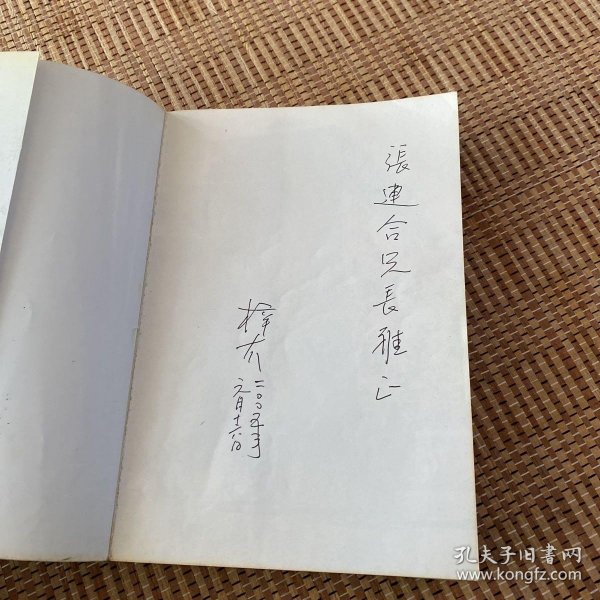 張連合兄長雅正
梓夫
二〇〇五年
六月十六日
孔夫子旧书网
www.kongfz.com